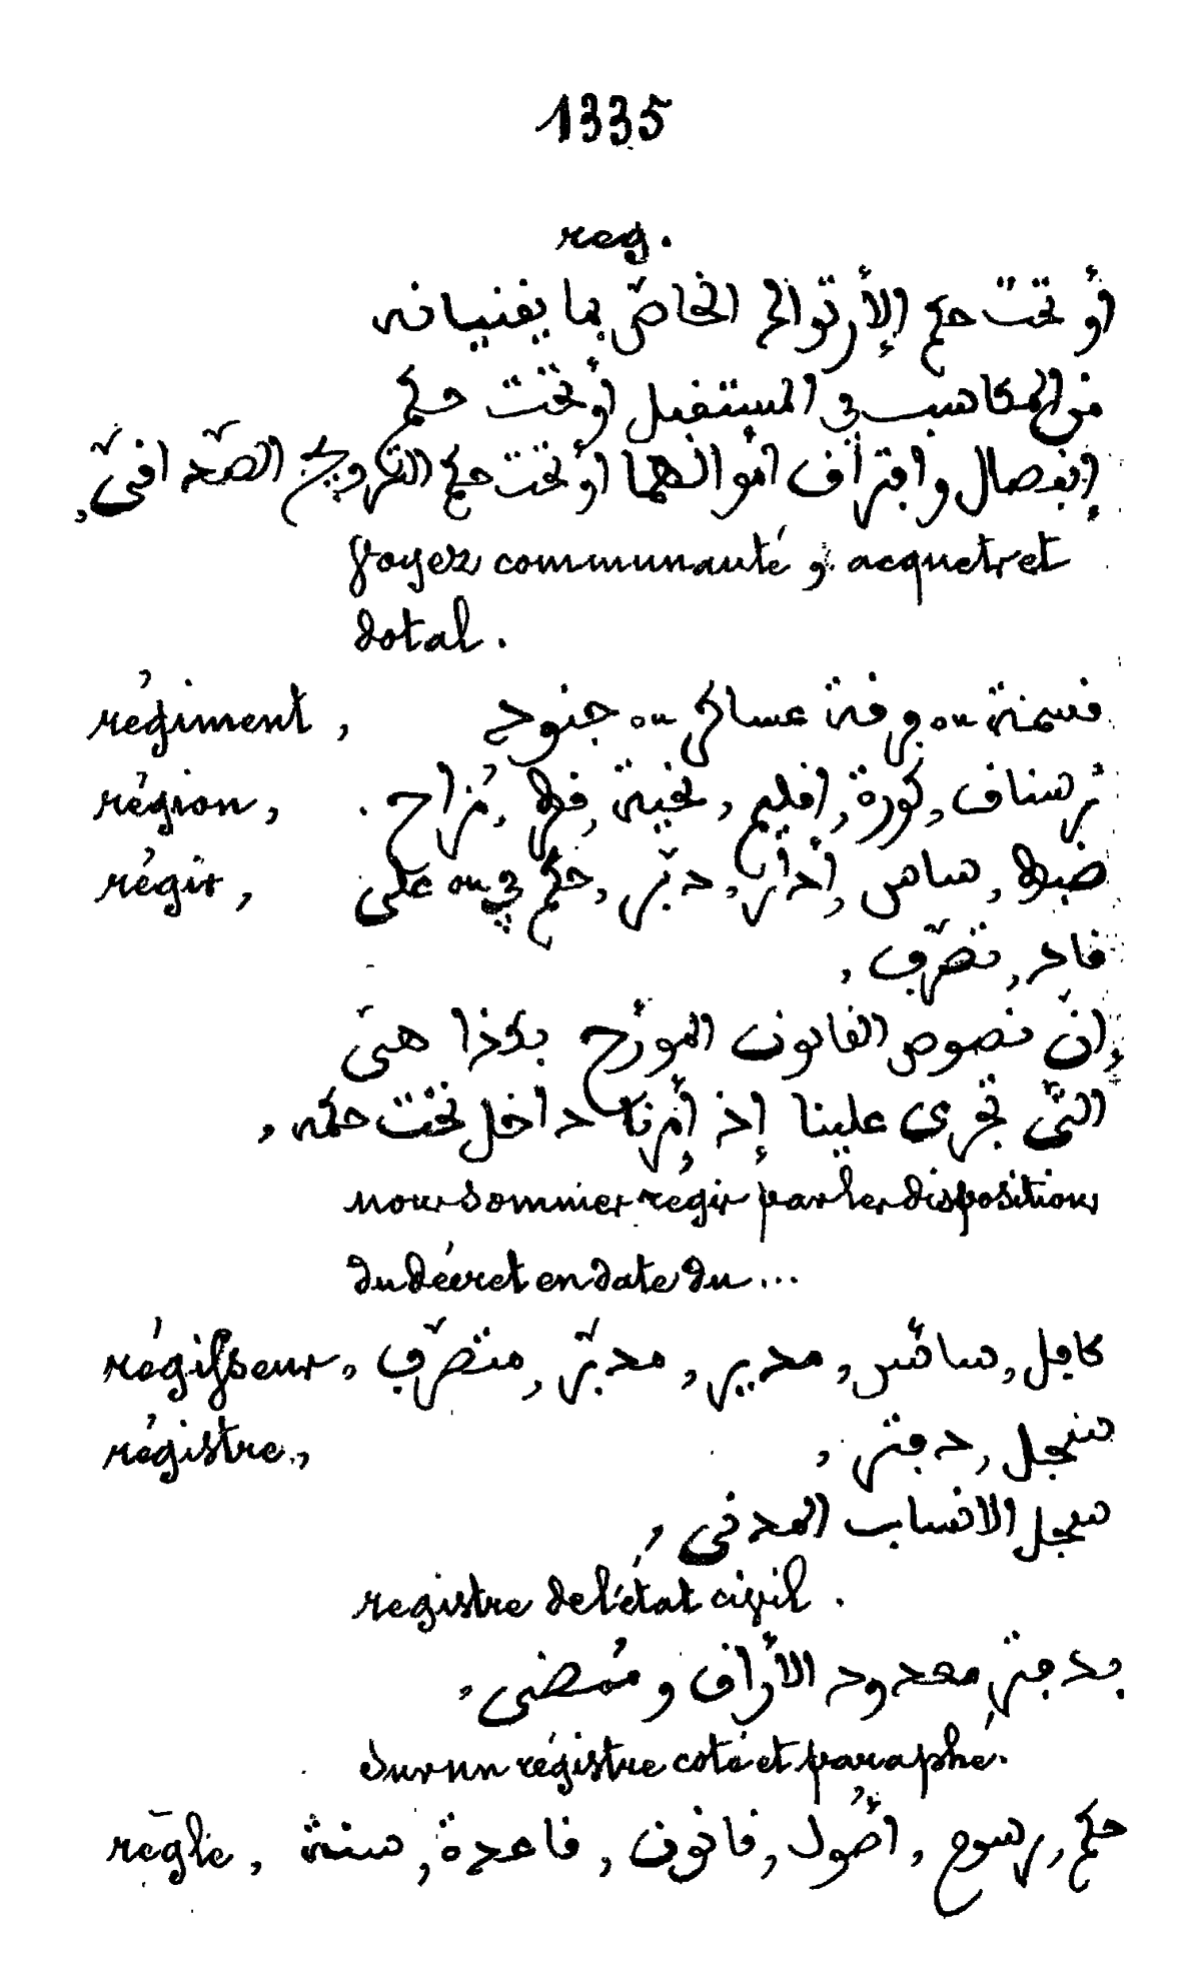 1335
reg.
أو تحت حكم الإرتوالم الخاصّ بما يفنيانه
من المكاسب في المستقبل أو تحت حكم
إنفصال وافتراق أموالهما أو تحت حكم التزويج الصّداقيّ,
voyez communauté, acquets et
dotal.
régiment, قسمة ou فرقة عساكر ou جنود
région, رستاق, كورة, إقليم, , قطر,
régir, ضبط, ساس, أدار, دبّر, حكم في ou على
قاد, تصرّف,
إنّ نصوص القانون المؤرّخ بكذا هي
التي تجري علينا إذ أمرنا داخل تحت حكمه,
nous sommes régis par les dispositions
du décret en date du...
régisseur, كافل, سائس, مدير, مدبّر, متصرّف
régistre, سجل, دفتر,
سجل الانساب المدني,
registre de l'état civil.
بدفتر معدود الأراق وممضى,
sur un régistre coté et paraphé.
règle, حكم, رسوم, أصول, قانون, قاعدة, سنة